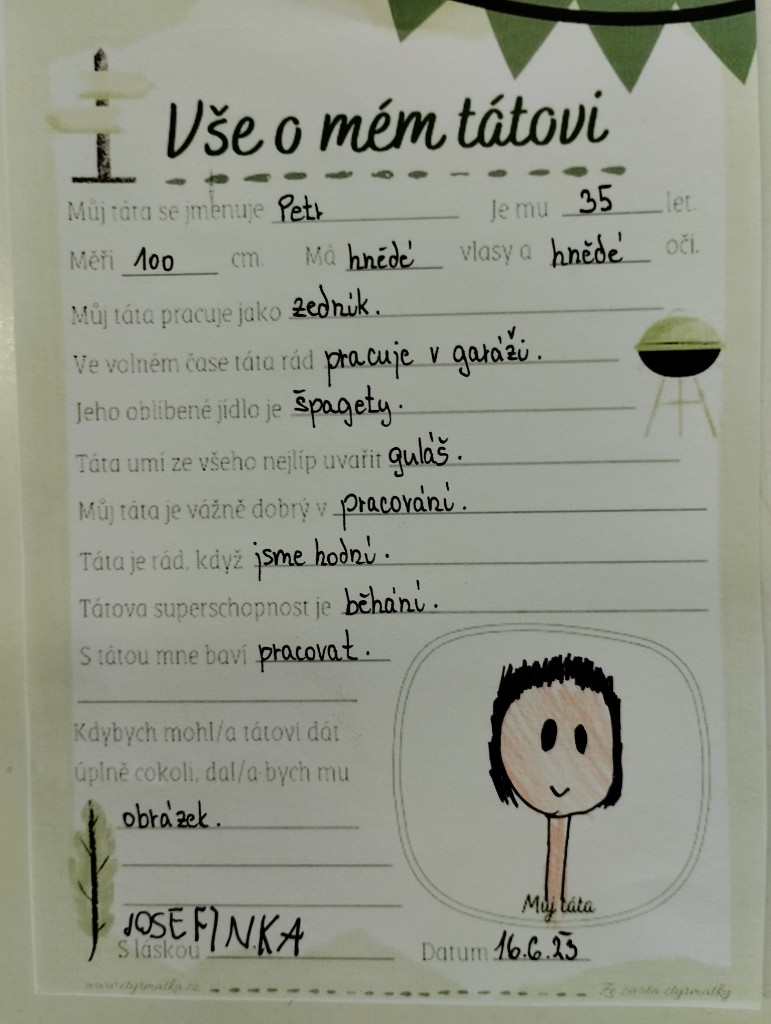 Vše o mém tátovi
Můj táta se jmenuje Petr Je mu 35 let.
Měří 100 cm. Má hnědé vlasy a hnědé oči.
Můj táta pracuje jako zedník.
Ve volném čase táta rád pracuje v garáži.
Jeho oblíbené jídlo je špagety.
Táta umí ze všeho nejlíp uvařit guláš.
Můj táta je vážně dobrý v pracování.
Táta je rád, když jsme hodní.
Tátova superschopnost je běhání.
S tátou mne baví pracovat.
Kdybych mohl/a tátovi dát
úplně cokoli, dal/a bych mu
obrázek.
Můj táta
JOSEFINKA
S láskou Datum 16.6.23
www.ctyrmatka.cz Ze života čtyřmatky